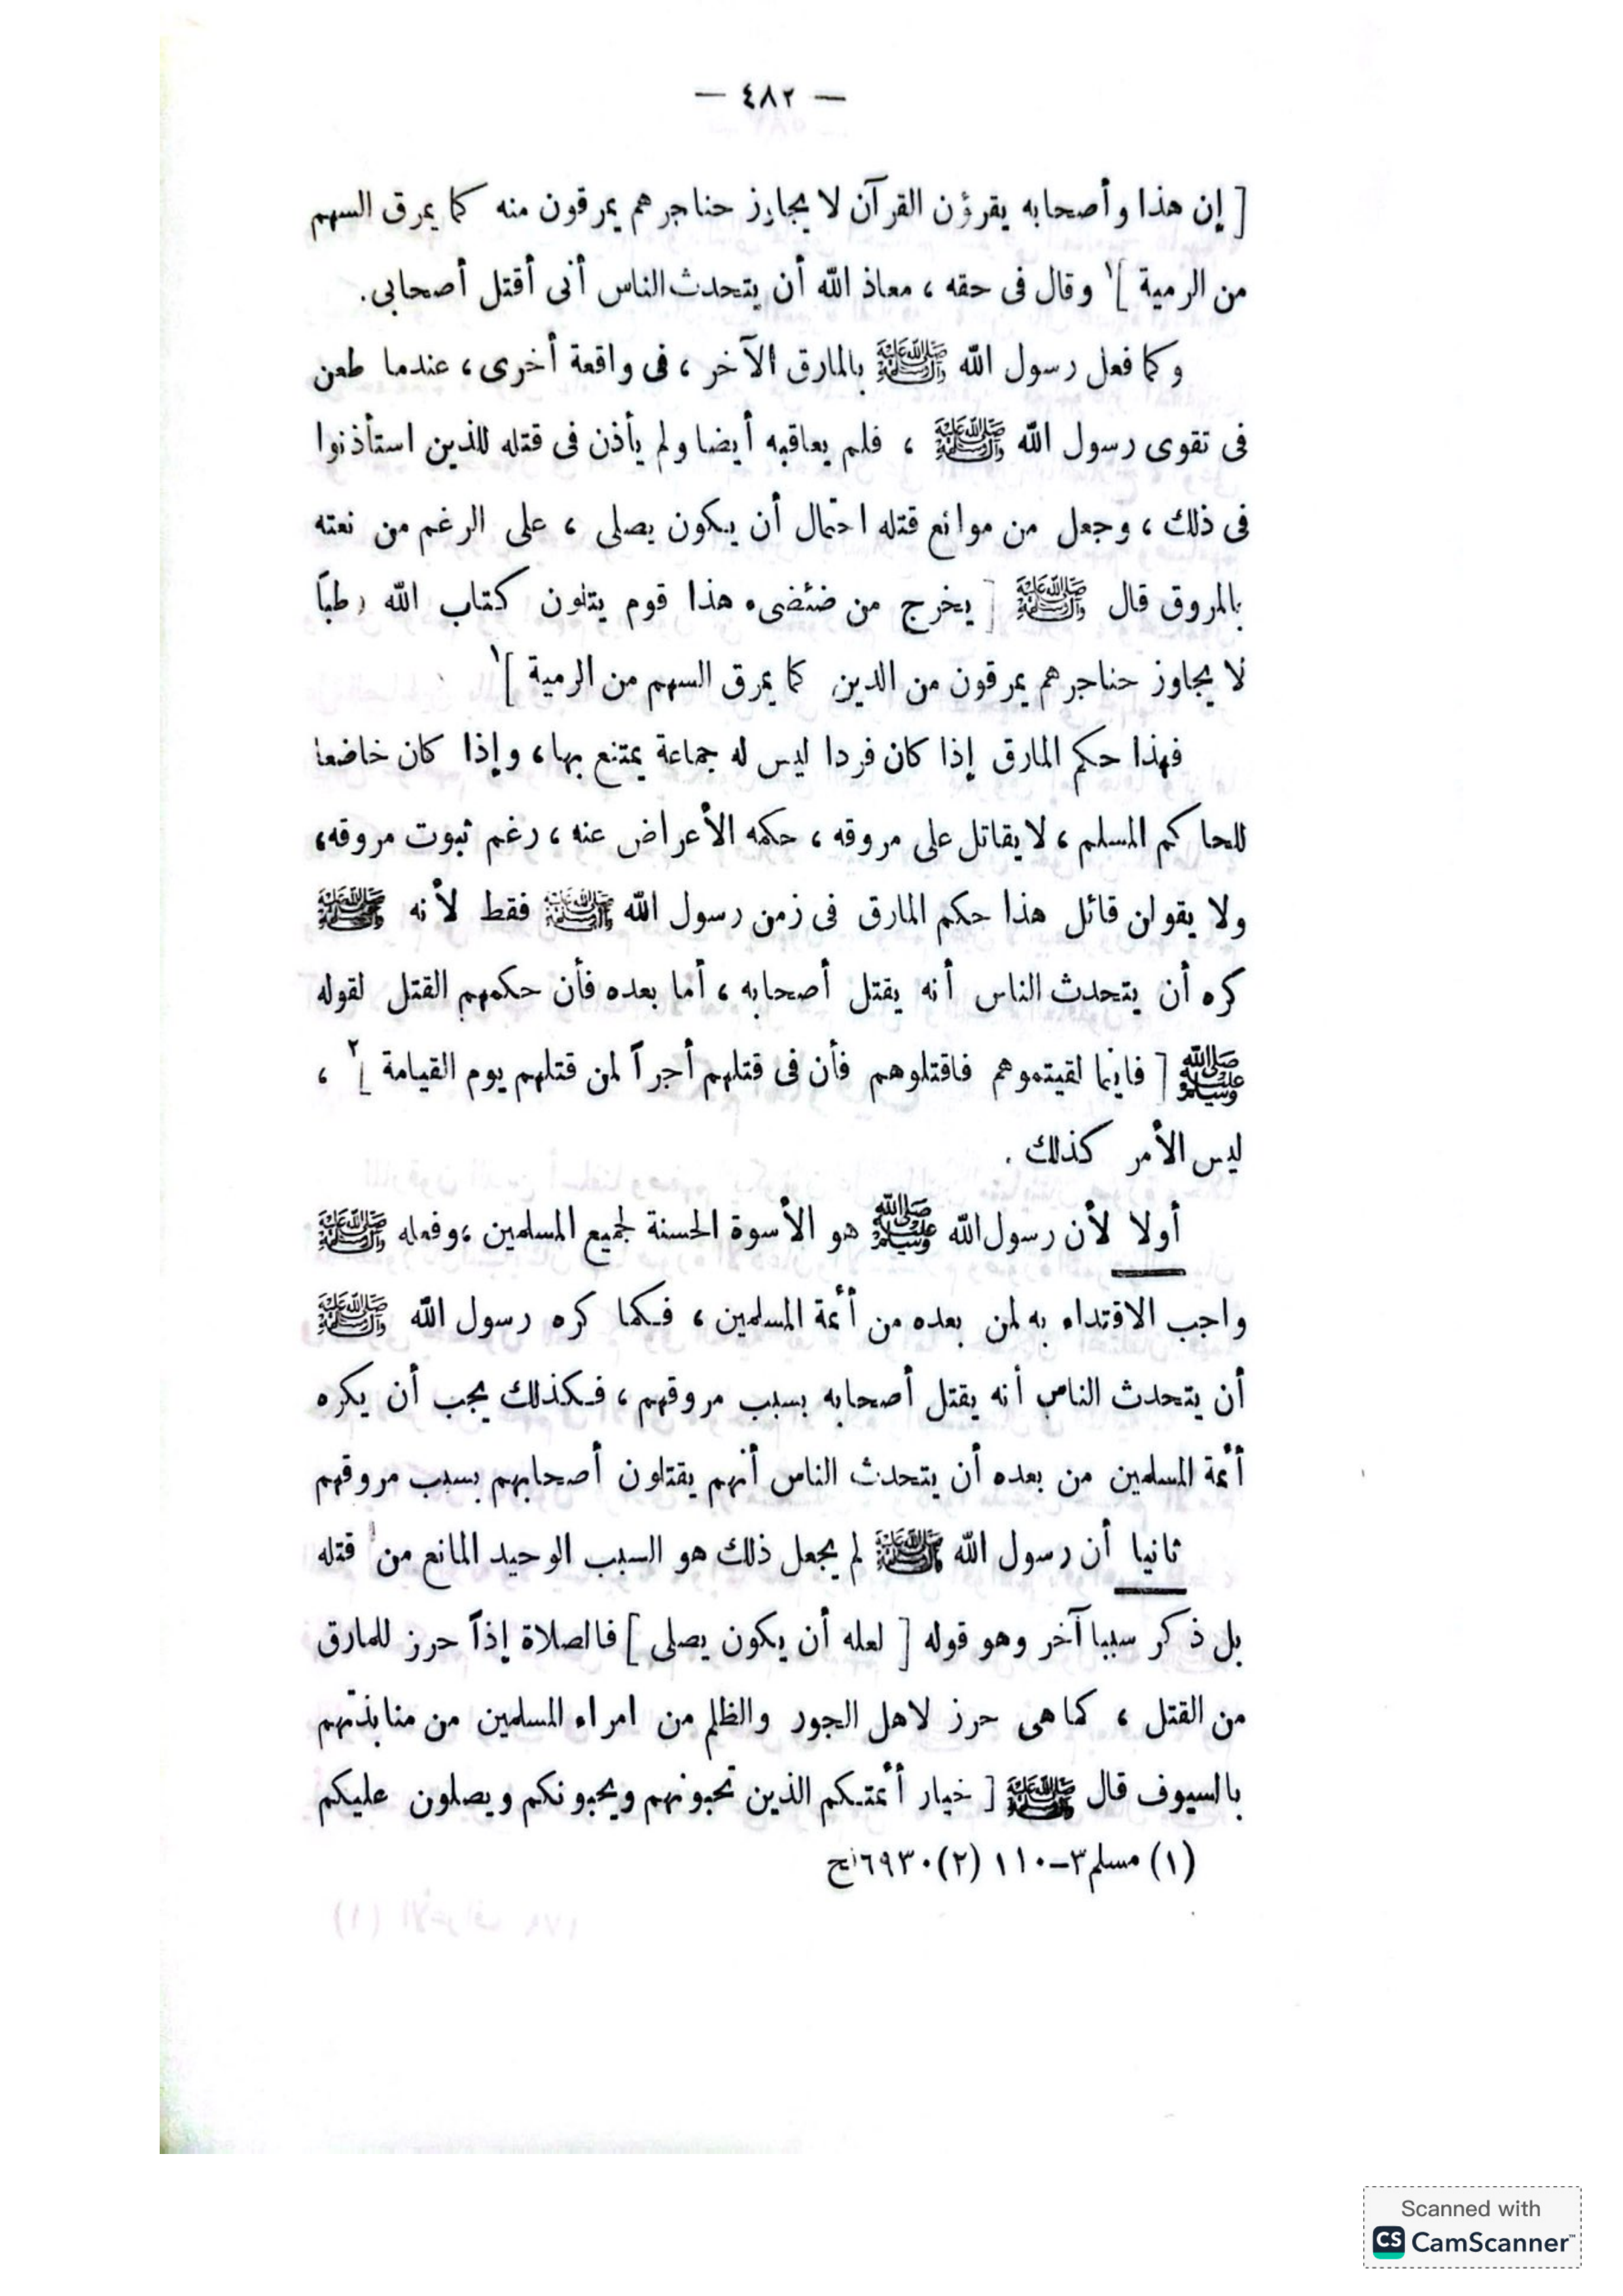 — ٤٨٢ —
[ إن هذا وأصحابه يقرؤن القرآن لا يجاوز حناجرهم يمرقون منه كما يمرق السهم
من الرمية ]١ وقال فى حقه ، معاذ الله أن يتحدث الناس أنى أقتل أصحابى .
وكما فعل رسول الله ﷺ بالمارق الآخر ، فى واقعة أخرى ، عندما طعن
فى تقوى رسول الله ﷺ ، فلم يعاقبه أيضا ولم يأذن فى قتله للذين استأذنوا
فى ذلك ، وجعل من موانع قتله احتمال أن يكون يصلى ، على الرغم من نعته
بالمروق قال ﷺ [ يخرج من ضئضىء هذا قوم يتلون كتاب الله رطباً
لا يجاوز حناجرهم يمرقون من الدين كما يمرق السهم من الرمية ]١
فهذا حكم المارق إذا كان فردا ليس له جماعة يمتنع بها ، وإذا كان خاضعا
للحاكم المسلم ، لا يقاتل على مروقه ، حكمه الأعراض عنه ، رغم ثبوت مروقه ،
ولا يقولن قائل هذا حكم المارق فى زمن رسول الله ﷺ فقط لأنه ﷺ
كره أن يتحدث الناس أنه يقتل أصحابه ، أما بعده فأن حكمهم القتل لقوله
ﷺ [ فاينما لقيتموهم فاقتلوهم فأن فى قتلهم أجراً لمن قتلهم يوم القيامة ]٢ ،
ليس الأمر كذلك .
أولا لأن رسول الله ﷺ هو الأسوة الحسنة لجميع المسلمين ، وفعله ﷺ
واجب الاقتداء به لمن بعده من أئمة المسلمين ، فكما كره رسول الله ﷺ
أن يتحدث الناس أنه يقتل أصحابه بسبب مروقهم ، فكذلك يجب أن يكره
أئمة المسلمين من بعده أن يتحدث الناس أنهم يقتلون أصحابهم بسبب مروقهم
ثانيا أن رسول الله ﷺ لم يجعل ذلك هو السبب الوحيد المانع من قتله
بل ذكر سببا آخر وهو قوله [ لعله أن يكون يصلى ] فالصلاة إذاً حرز للمارق
من القتل ، كما هى حرز لاهل الجور والظلم من امراء المسلمين من منابذتهم
بالسيوف قال ﷺ [ خيار أئمتكم الذين تحبونهم ويحبونكم ويصلون عليكم
(١) مسلم ٣–١١٠ (٢) ٦٩٣٠ فتح
Scanned with
CS CamScanner™